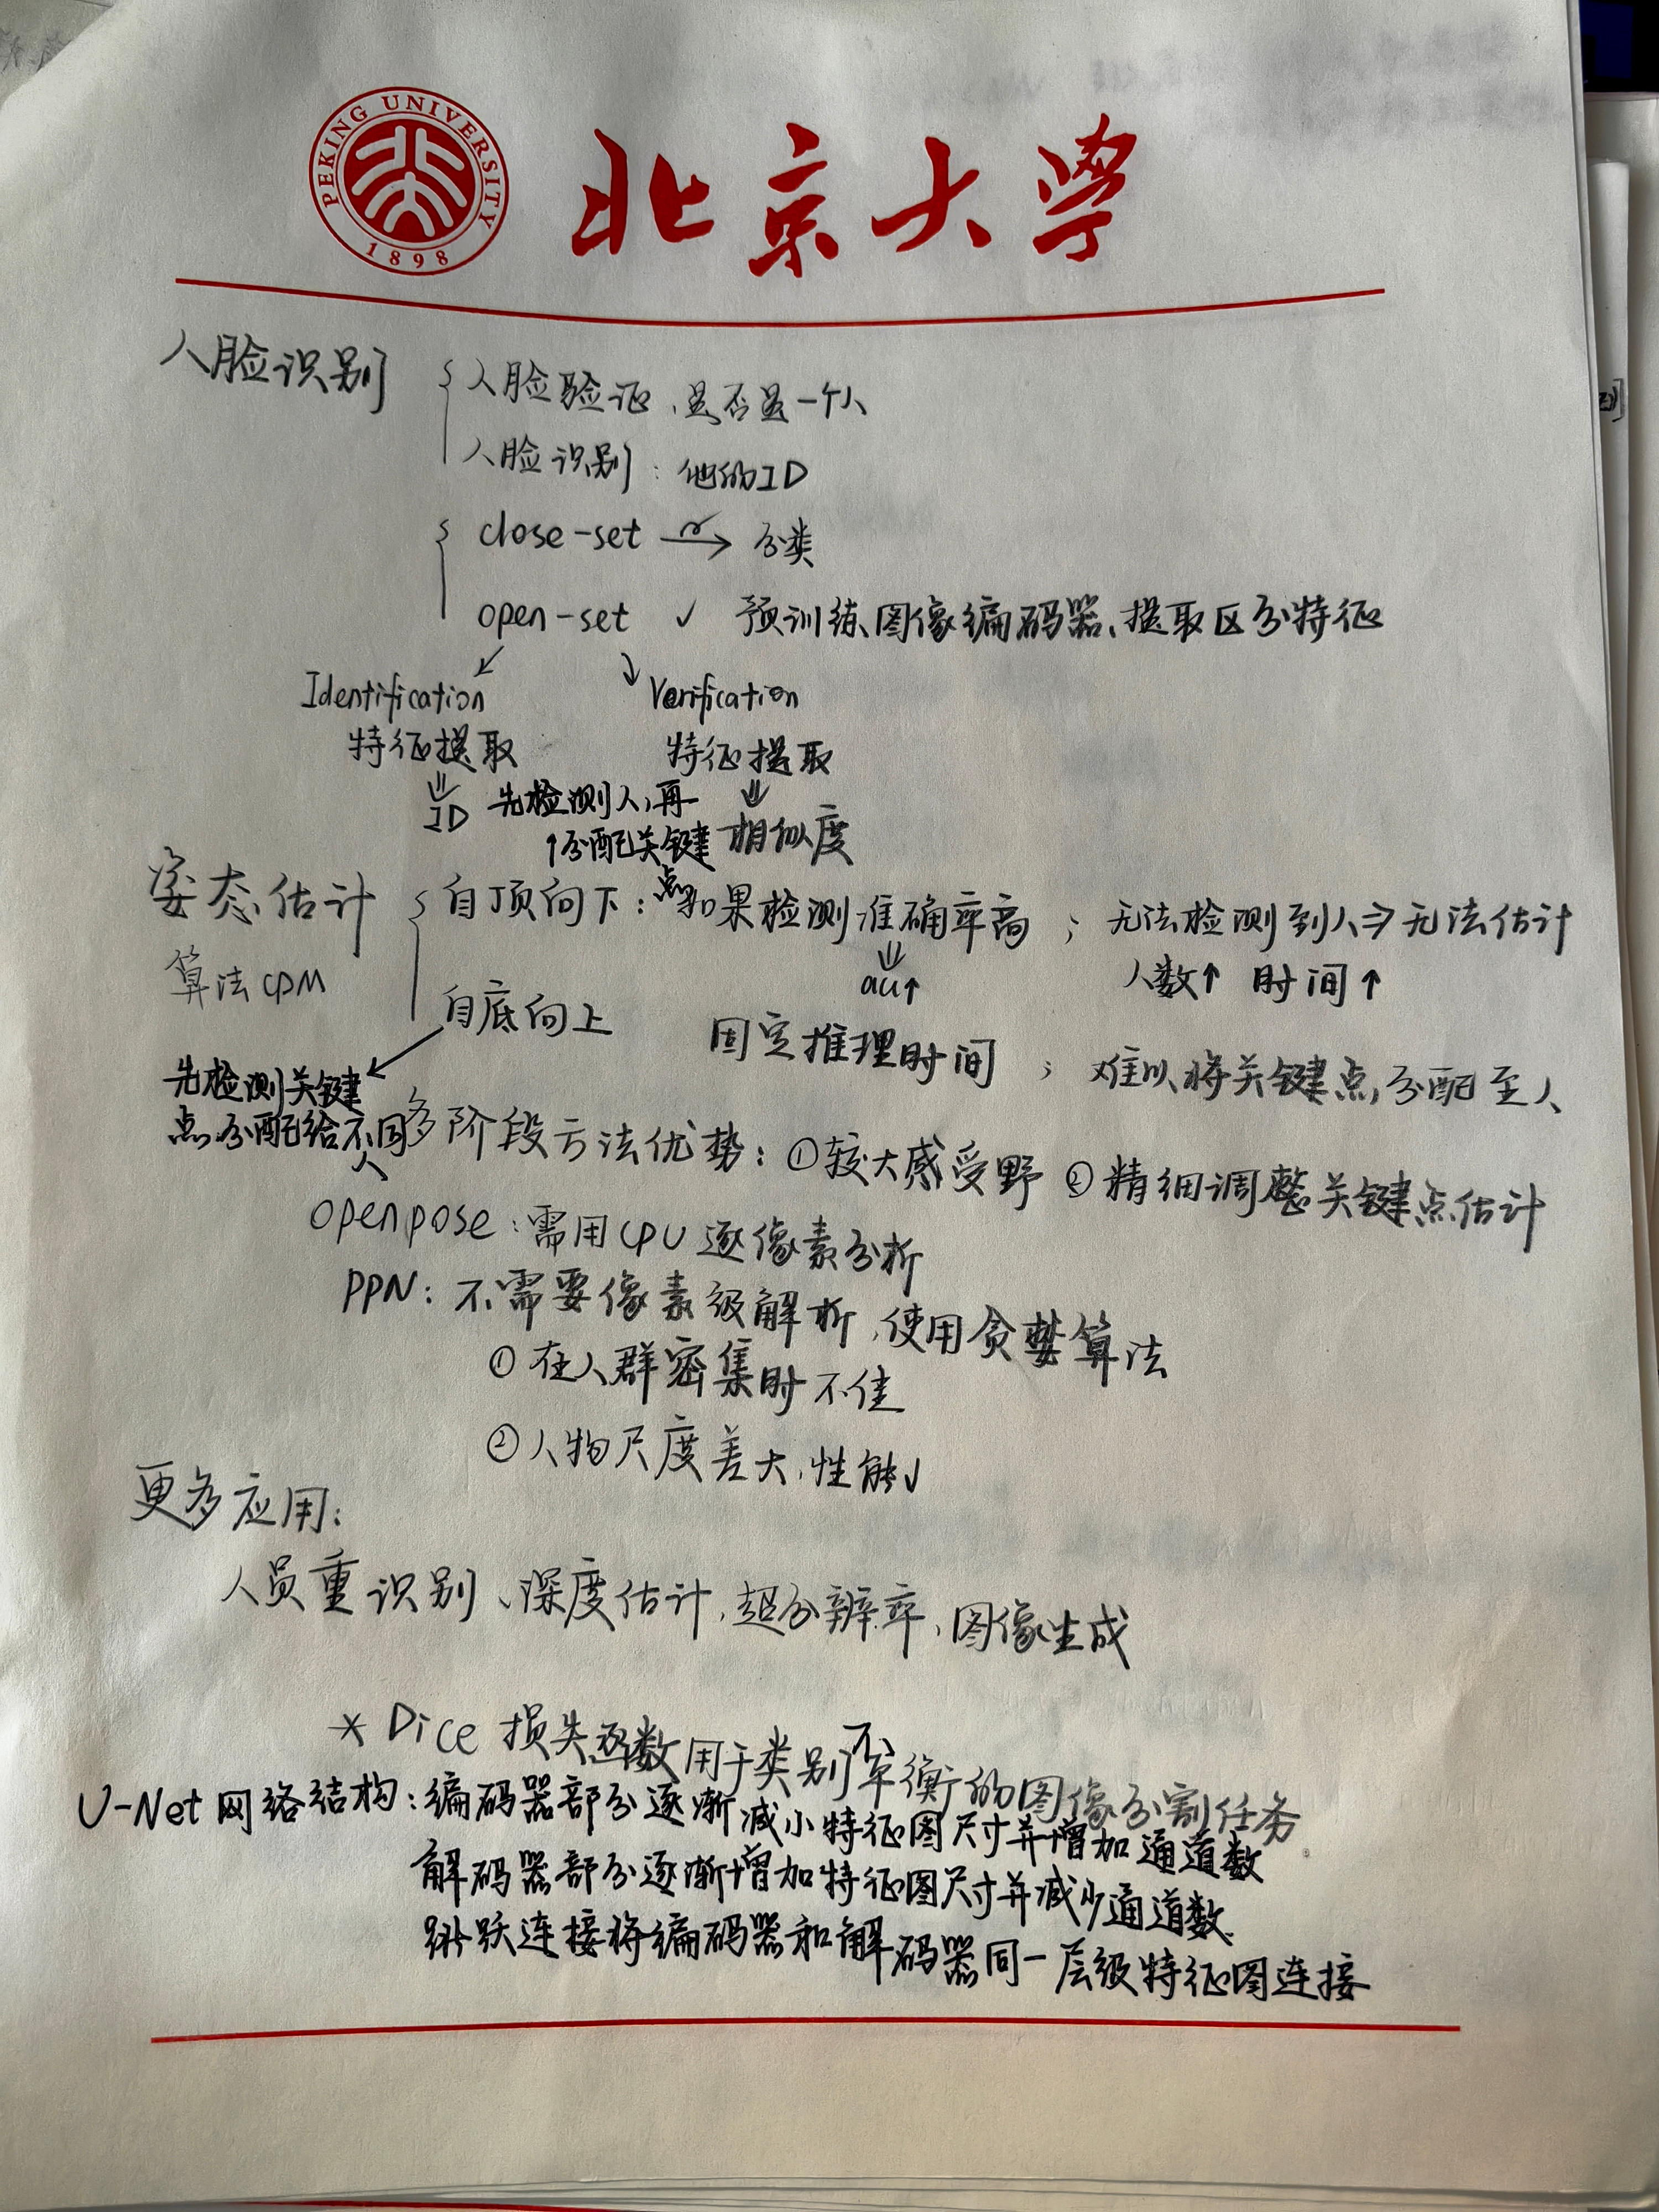 PEKING UNIVERSITY
1898
北京大学
人脸识别
人脸验证、是否是一个人
人脸识别：他的ID
close-set → 分类
open-set ✓ 预训练图像编码器、提取区分特征
Identification
Verification
特征提取
特征提取
⇓
⇓
ID
相似度
先检测人,再
↑分配关键
点
姿态估计
算法CPM
自顶向下：如果检测准确率高；无法检测到人⇒无法估计
⇓
acc↑
人数↑ 时间↑
自底向上
固定推理时间；难以将关键点分配至人
先检测关键
点分配给不同
人
多阶段方法优势：①较大感受野 ②精细调整关键点估计
openpose：需用CPU逐像素分析
PPN：不需要像素级解析,使用贪婪算法
①在人群密集时不佳
②人物尺度差大,性能↓
更多应用：
人员重识别、深度估计,超分辨率,图像生成
* Dice 损失函数用于类别不平衡的图像分割任务
U-Net网络结构：编码器部分逐渐减小特征图尺寸并增加通道数
解码器部分逐渐增加特征图尺寸并减少通道数
跳跃连接将编码器和解码器同一层级特征图连接